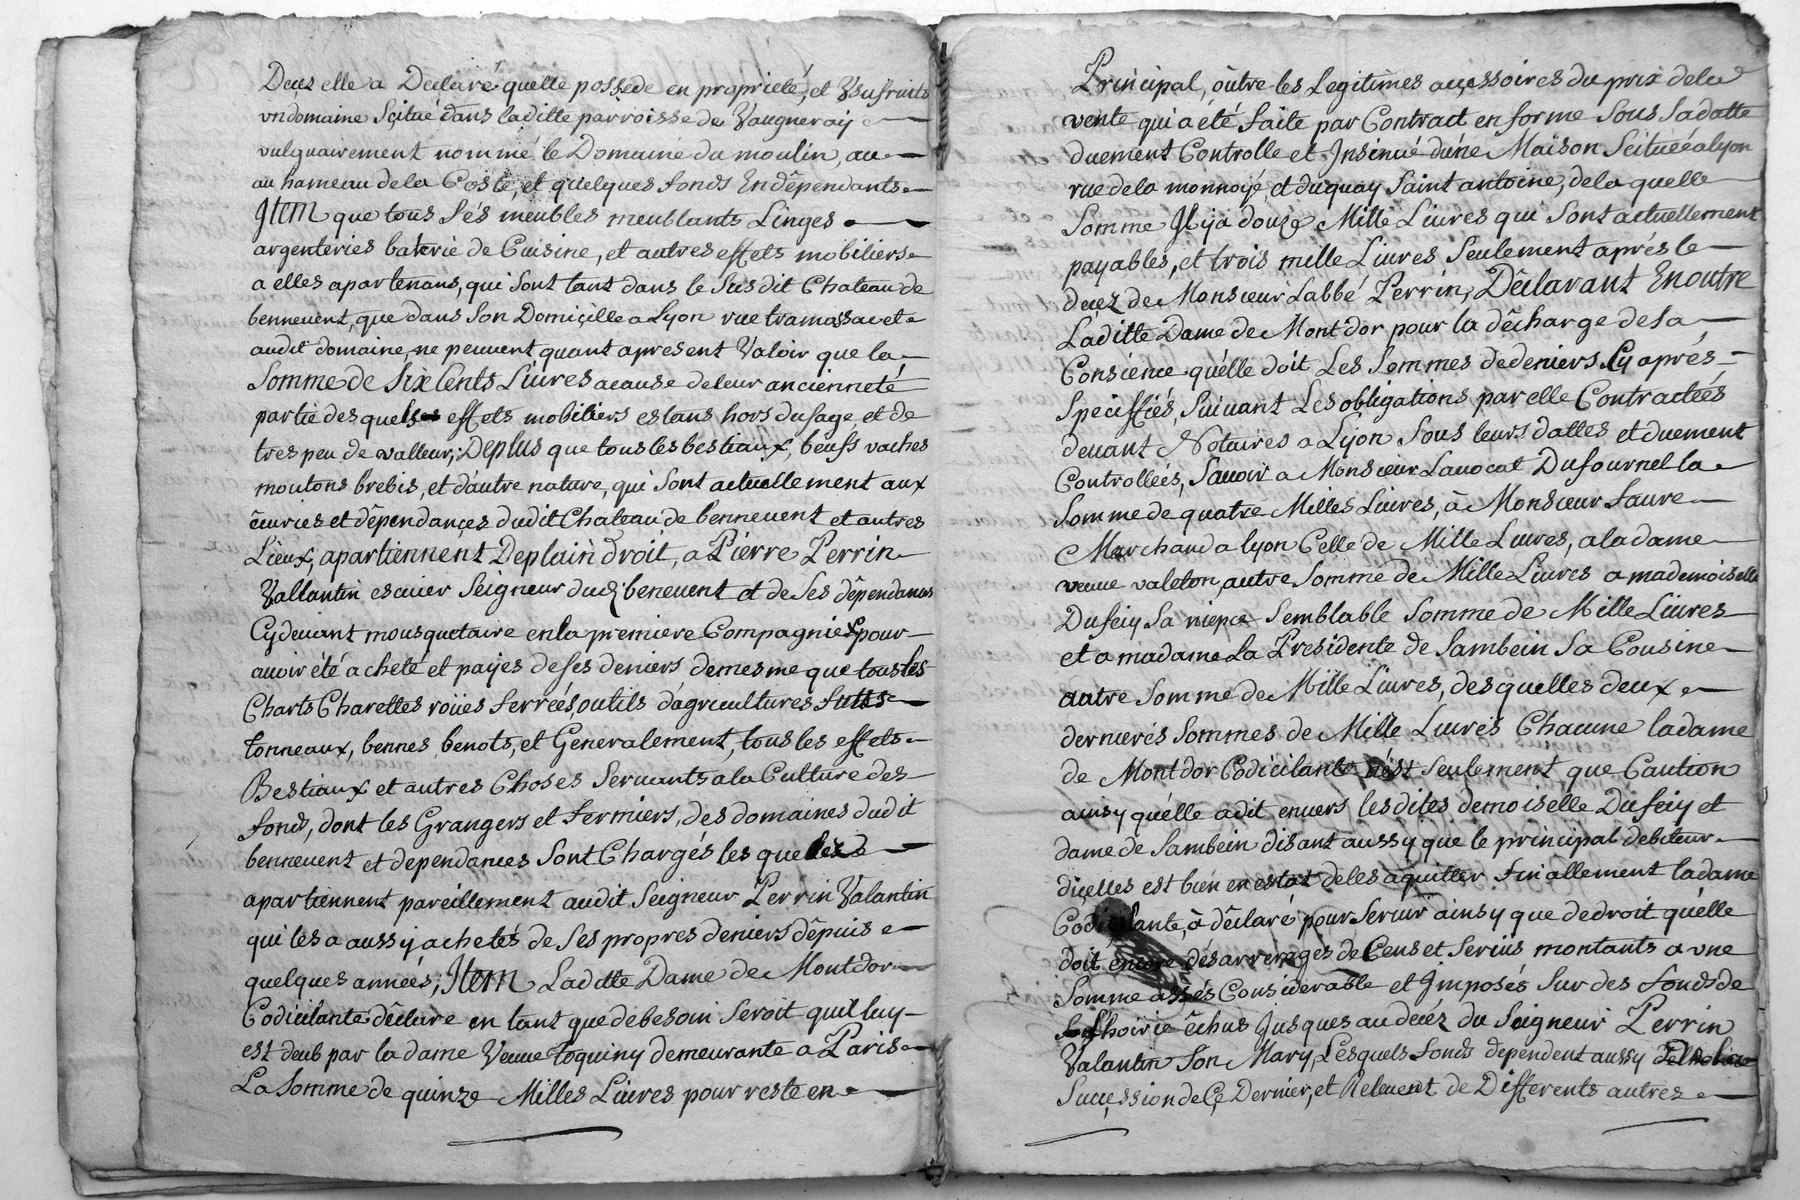 Decez elle a Declaré quelle possede en proprieté, et Usufruits
un domaine Sçitué dans laditte parroisse de Vaugneray
vulquairement nommé le Domaine du moulin, au
au hameau de la Coste, et quelques fonds En dêpendants
Item que tous Sés meubles meublants Linges
argenteries baterie de Cuisine, et autres effets mobiliers
a elles apartenans, qui Sont tant dans le Susdit Chateau de
benneuent, que dans Son Domiçille a Lyon rue tramassac et
audit domaine, ne peuvent quant apresent Valoir que la
Somme de Six Cents Liures acause de leur ancienneté
partie desquels effets mobiliers estans hors dusage, et de
tres peu de valleur; De plus que tous les bestiaux, beufs vaches
moutons brebis, et d'autre nature, qui Sont actuellement aux
êcuries et dêpendançes dudit Chateau de benneuent et autres
Lieux, apartiennent De plain droit, a Piérre Perrin
Vallantin escuier Seigneur dud. beneuent et de Ses dêpendances
Cy deuant mousquetaire en la premiere Compagnie pour
auoir été acheté et payes de ses deniers, demesme que tous les
Charts Charettes roües ferreés, outils d'agricultures futts
tonneaux, bennes, benots, et Generalement, tous les effets
Bestiaux et autres Choses Seruants a la Culture des
fonds, dont les Grangers et fermiers, des domaines dudit
benneuent et dependances Sont Chargés les quelles
apartiennent pareillement audit Seigneur Perrin Valantin
qui les a aussy achetés de Ses propres deniers dêpuis
quelques années; Item Laditte Dame de Montdor
Codicilante dêclare en tant que de besoin Seroit quil luy
est deub par la dame Veuue Toquiny demeurante a Paris
La Somme de quinze Milles Liures pour reste en
Principal, oûtre les Legitimes acçessoires du prix de la
vente qui a été faite par Contract en forme Sous Sa datte
duement Controlle et Insinué d'une Maison Scituéé a lyon
rue de la monnoye, et du quay Saint antoine, de la quelle
Somme Il y a douze Mille Liures qui Sont actuellement
payables, et trois mille Liures Seulement aprés le
decez de Monsieur Labbé Perrin, Dêclarant En outre
Laditte Dame de Montdor pour la dêcharge de Sa
Consçience qu'elle doit Les Sommes de deniers Cy aprés
Speciffiés, Suiuant Les obligations par elle Contractées
deuant Notaires a Lyon Sous leurs dattes et duement
Controlleés, Sauoir a Monsieur Lauocat Dufournel la
Somme de quatre Milles Liures, à Monsieur Faure
Marchand a lyon Celle de Mille Liures, a la dame
veuue valeton, autre Somme de Mille Liures a mademoiselle
Dufeiy Sa niepce Semblable Somme de Mille Liures
et a madame La Presidente de Sambein Sa Cousine
autre Somme de Mille Liures, des quelles deux
dernierés Sommes de Mille Liures Chacune la dame
de Montdor Codicilante n'est Seulement que Caution
ainsy qu'élle a dit enuers lesdites demoiselle Dufeiy et
dame de Sambein disant aussy que le principal debiteur
diçelles est bien en estat de les aquitter finallement la dame
Codicilante, à dêclaré pour Seruir ainsy que de droit qu'élle
doit encore dés arrerages de Cens et Seruis montants a une
Somme assés Considerable et Imposés Sur des fonds de
L'hoirie êchus Jusques au decéz du Seigneur Perrin
Valantin Son Mary, Lesquels fonds dependent aussy De la
Sucçession de Ce Dernier, et Releuent de Differents autres